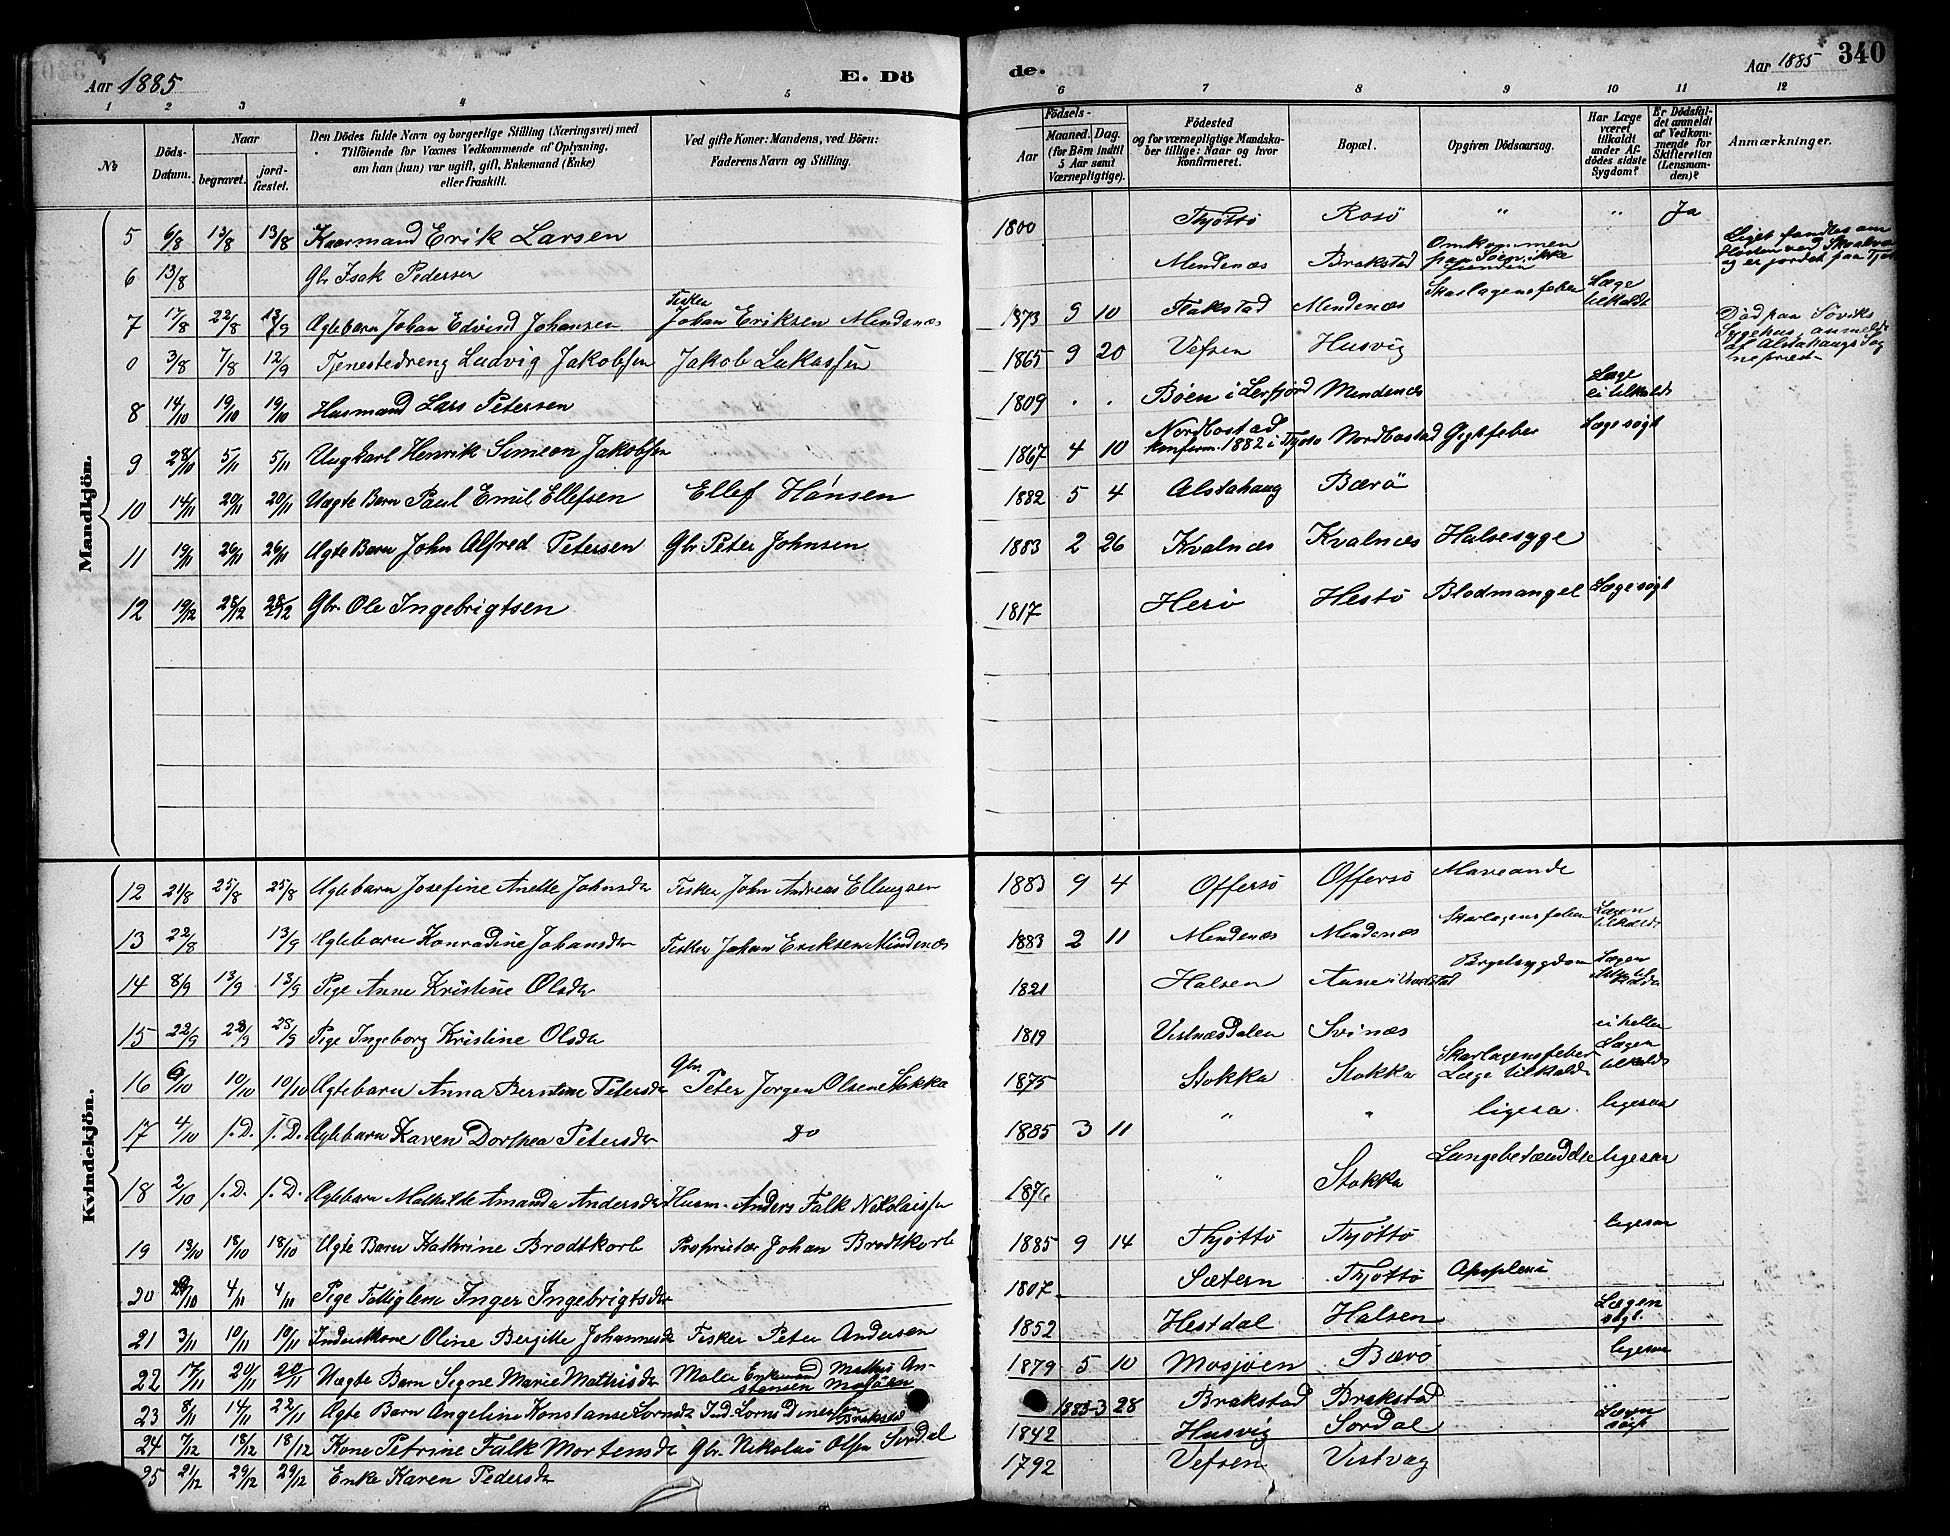 Aar 1885
E. Dö
de.
Aar 1885 340
1 2 3 4 5 6 7 8 9 10 11 12
№
Döds-Datum.
Naar
begravet.
jord-fæstet.
Den Dödes fulde Navn og borgerlige Stilling (Næringsvei) med
Tilföiende for Voxnes Vedkommende af Oplysning,
om han (hun) var ugift, gift, Enkemand (Enke)
eller fraskilt.
Ved gifte Koner: Mandens, ved Börn:
Faderens Navn og Stilling.
Födsels-
Aar
Maaned. Dag.
(for Börn indtil
5 Aar samt
Værnepligtige).
Födested
og for værnepligtige Mandska-
ber tillige: Naar og hvor
konfirmeret.
Bopæl.
Opgiven Dödsaarsag.
Har Læge
været
tilkaldt
under Af-
dödes sidste
Sygdom?
Er Dödsfal-
det anmeldt
af Vedkom-
mende for
Skifteretten
(Lensman-
den)?
Anmærkninger.
Mandkjön.
5 6/8 13/8 13/8 Kaarmand Erik Larsen 1800 Thjöttö Rosö " " Ja
6 13/8 Gbr Isak Pedersen Mindenæs Brakstad Omkommen paa Söen, ikke funden Liget fandtes om Hösten ved og er jordet paa
7 17/8 22/8 13/9 Ægtebarn Johan Edvind Johansen Fisker Johan Eriksen Mindenæs 1873 9 10 Flakstad Mindenæs Skarlagensfeber Læge tilkaldt
0 3/8 7/8 12/9 Tjenestedreng Ludvig Jakobsen Jakob Lukassen 1865 9 20 Vefsen Husvig Död paa Söviks Sygehus, anmeldt af Alstahaugs Sognepræst
8 14/10 19/10 19/10 Husmand Lars Petersen 1809 . . Böen i Leirfjord Mindenæs Læge ei tilkaldt
9 28/10 5/11 5/11 Ungkarl Henrik Simeon Jakobsen 1867 4 10 Nordbostad Konfirm. 1882 i Tjöttö Nordbostad Gigtfeber Læge sögt
10 14/11 20/11 20/11 Uægte Barn Paul Emil Ellefsen Ellef Hansen 1882 5 4 Alstahaug Bærö
11 19/11 26/11 26/11 Ægte Barn John Alfred Petersen Gbr. Peter Johnsen 1883 2 26 Kvalnæs Kvalnæs Halsesyge
12 19/12 28/12 28/12 Gbr. Ole Ingebrigtsen 1817 Herö Hestö Blodmangel Læge sögt
Kvindekjön.
12 21/8 25/8 25/8 Ægtebarn Josefine Anette Johnsdr Fisker John Andreas Ellingsen 1883 9 4 Offersö Offersö Maveonde
13 22/8 13/9 Ægtebarn Konradine Johansdr Fisker Johan Eriksen Mindenæs 1883 2 11 Mindenæs Mindenæs Skarlagensfeber Lægen tilkaldt
14 8/9 13/9 13/9 Pige Anne Kristine Olsdr 1821 Halsen Brystsygdom Lægen
15 22/9 28/9 28/9 Pige Ingeborg Kristine Olsdr 1819 Vistnæsdalen Svinæs ei heller
16 6/10 10/10 10/10 Ægtebarn Anna Berntine Petersdr Gbr. Peter Jörgen Olsen Stokka 1875 Stokka Stokka Skarlagensfeber Læge tilkaldt Lægen tilkaldt
17 4/10 s. D. s. D. Ægtebarn Karen Dorthea Petersdr Do 1885 3 11 " " ligesa ligesaa
18 2/10 s. D. s. D. Ægtebarn Mathilde Amanda Andersdr Husm. Anders Falk Nikolaissen 1876 " Stokka Lungebetændelse ligesaa
19 13/10 18/10 18/10 Ægte Barn Kathrine Brodtkorb Proprietær Johan Brodtkorb 1885 9 14 Thjöttö Thjöttö ligesaa
20 4/11 4/11 Pige Fattiglem Inger Ingebrigtsdr 1807 Sætern Thjöttö Apoplexi
21 3/11 10/11 10/11 Inderstkone Oline Bergitte Johannesdr Fisker Peter Andersen 1852 Hestdal Halsen Lægen sögt.
22 17/11 20/11 20/11 Uægte Barn Signe Marie Mathisdr Maler Enkemand Mathis Anstensen Mosjöen 1879 5 10 Mosjöen Bærö ligesaa
23 8/11 14/11 22/11 Ægte Barn Angeline Konstanse Lornsdr Ind. Lorns Dinesen Brakstad 1883 3 28 Brakstad Brakstad "
24 7/12 18/12 18/12 Kone Petrine Falk Mortensdr Gbr. Nikolai Olsen Sördal 1842 Husvig Sördal Lægen sögt
25 21/12 29/12 29/12 Enke Karen Pedersdr 1792 Vefsen Vistvag